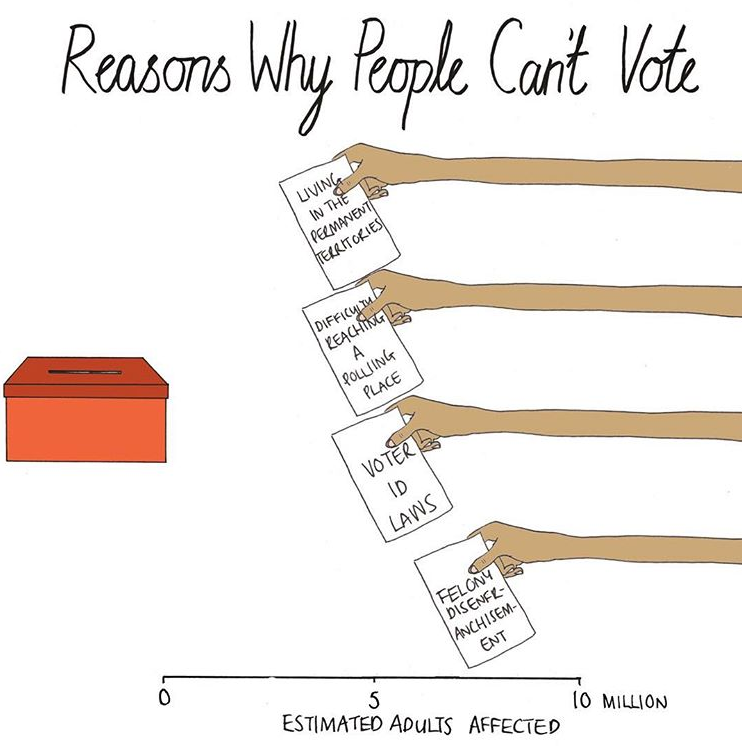 Reasons Why People Can't Vote
LIVING
IN THE
PERMANENT
TERRITORIES
DIFFICULTY
REACHING
A
POLLIING
PLACE
VOTER
ID
LAWS
FELONY
DISENFR-
ANCHISEM-
ENT
0 5 10 MILLION
ESTIMATED ADULTS AFFECTED